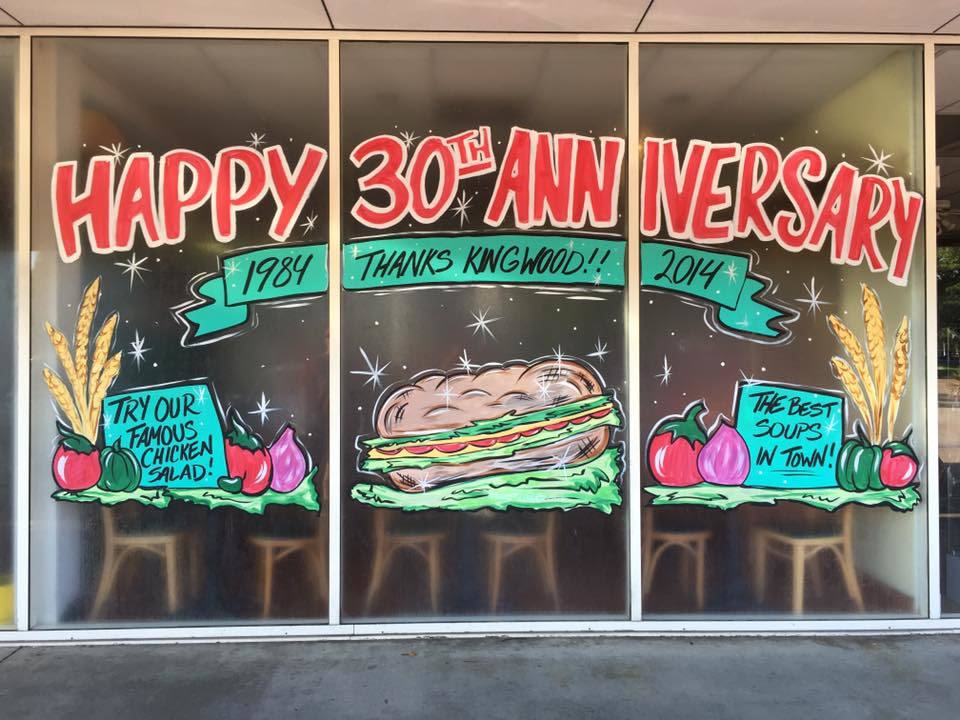 HAPPY 30TH ANNIVERSARY
1984 THANKS KINGWOOD!! 2014
TRY OUR
FAMOUS
CHICKEN
SALAD!
THE BEST
SOUPS
IN TOWN!